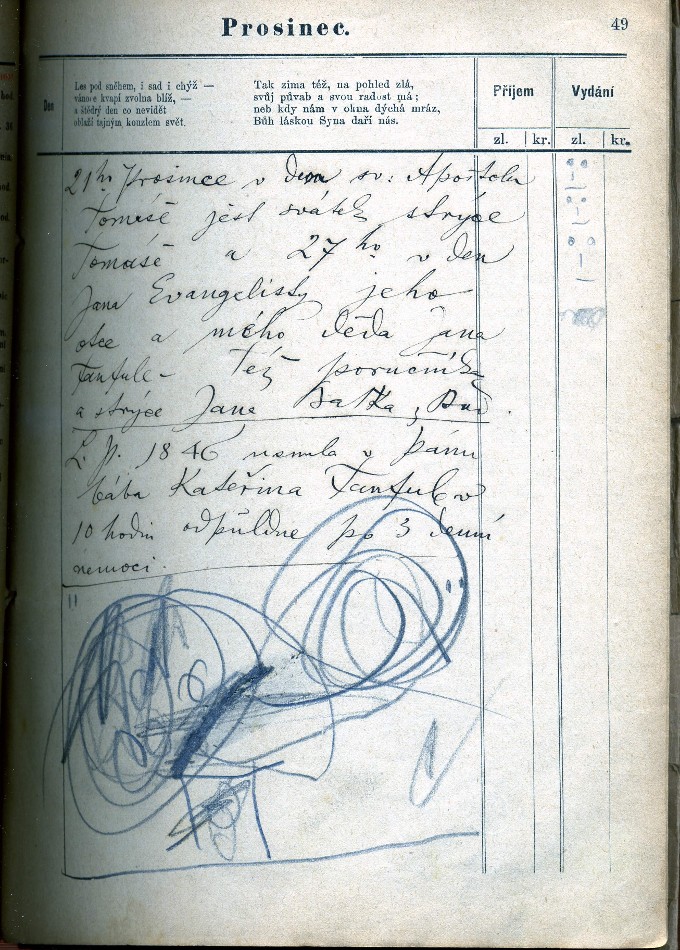 49
Prosinec.
Den
Les pod sněhem, i sad i chýž —
vánoce kvapí zvolna blíž, —
a štědrý den co nevidět
oblaží tajným kouzlem svět.
Tak zima též, na pohled zlá,
svůj půvab a svou radost má;
neb kdy nám v okna dýchá mráz,
Bůh láskou Syna daří nás.
Příjem
Vydání
zl. kr. zl. kr.
21ho Prosince v den sv: Apoštola
Tomáše jest svátek strýce
Tomáše a 27ho v den
Jana Evangelisty jeho
otce a mého děda Jana
Fanfule - též poručníka
a strýce Jana
L. P. 1846 usnula v Pánu
bába Kateřina Fanfule v
10 hodin odpůldne po 3 denní
nemoci.